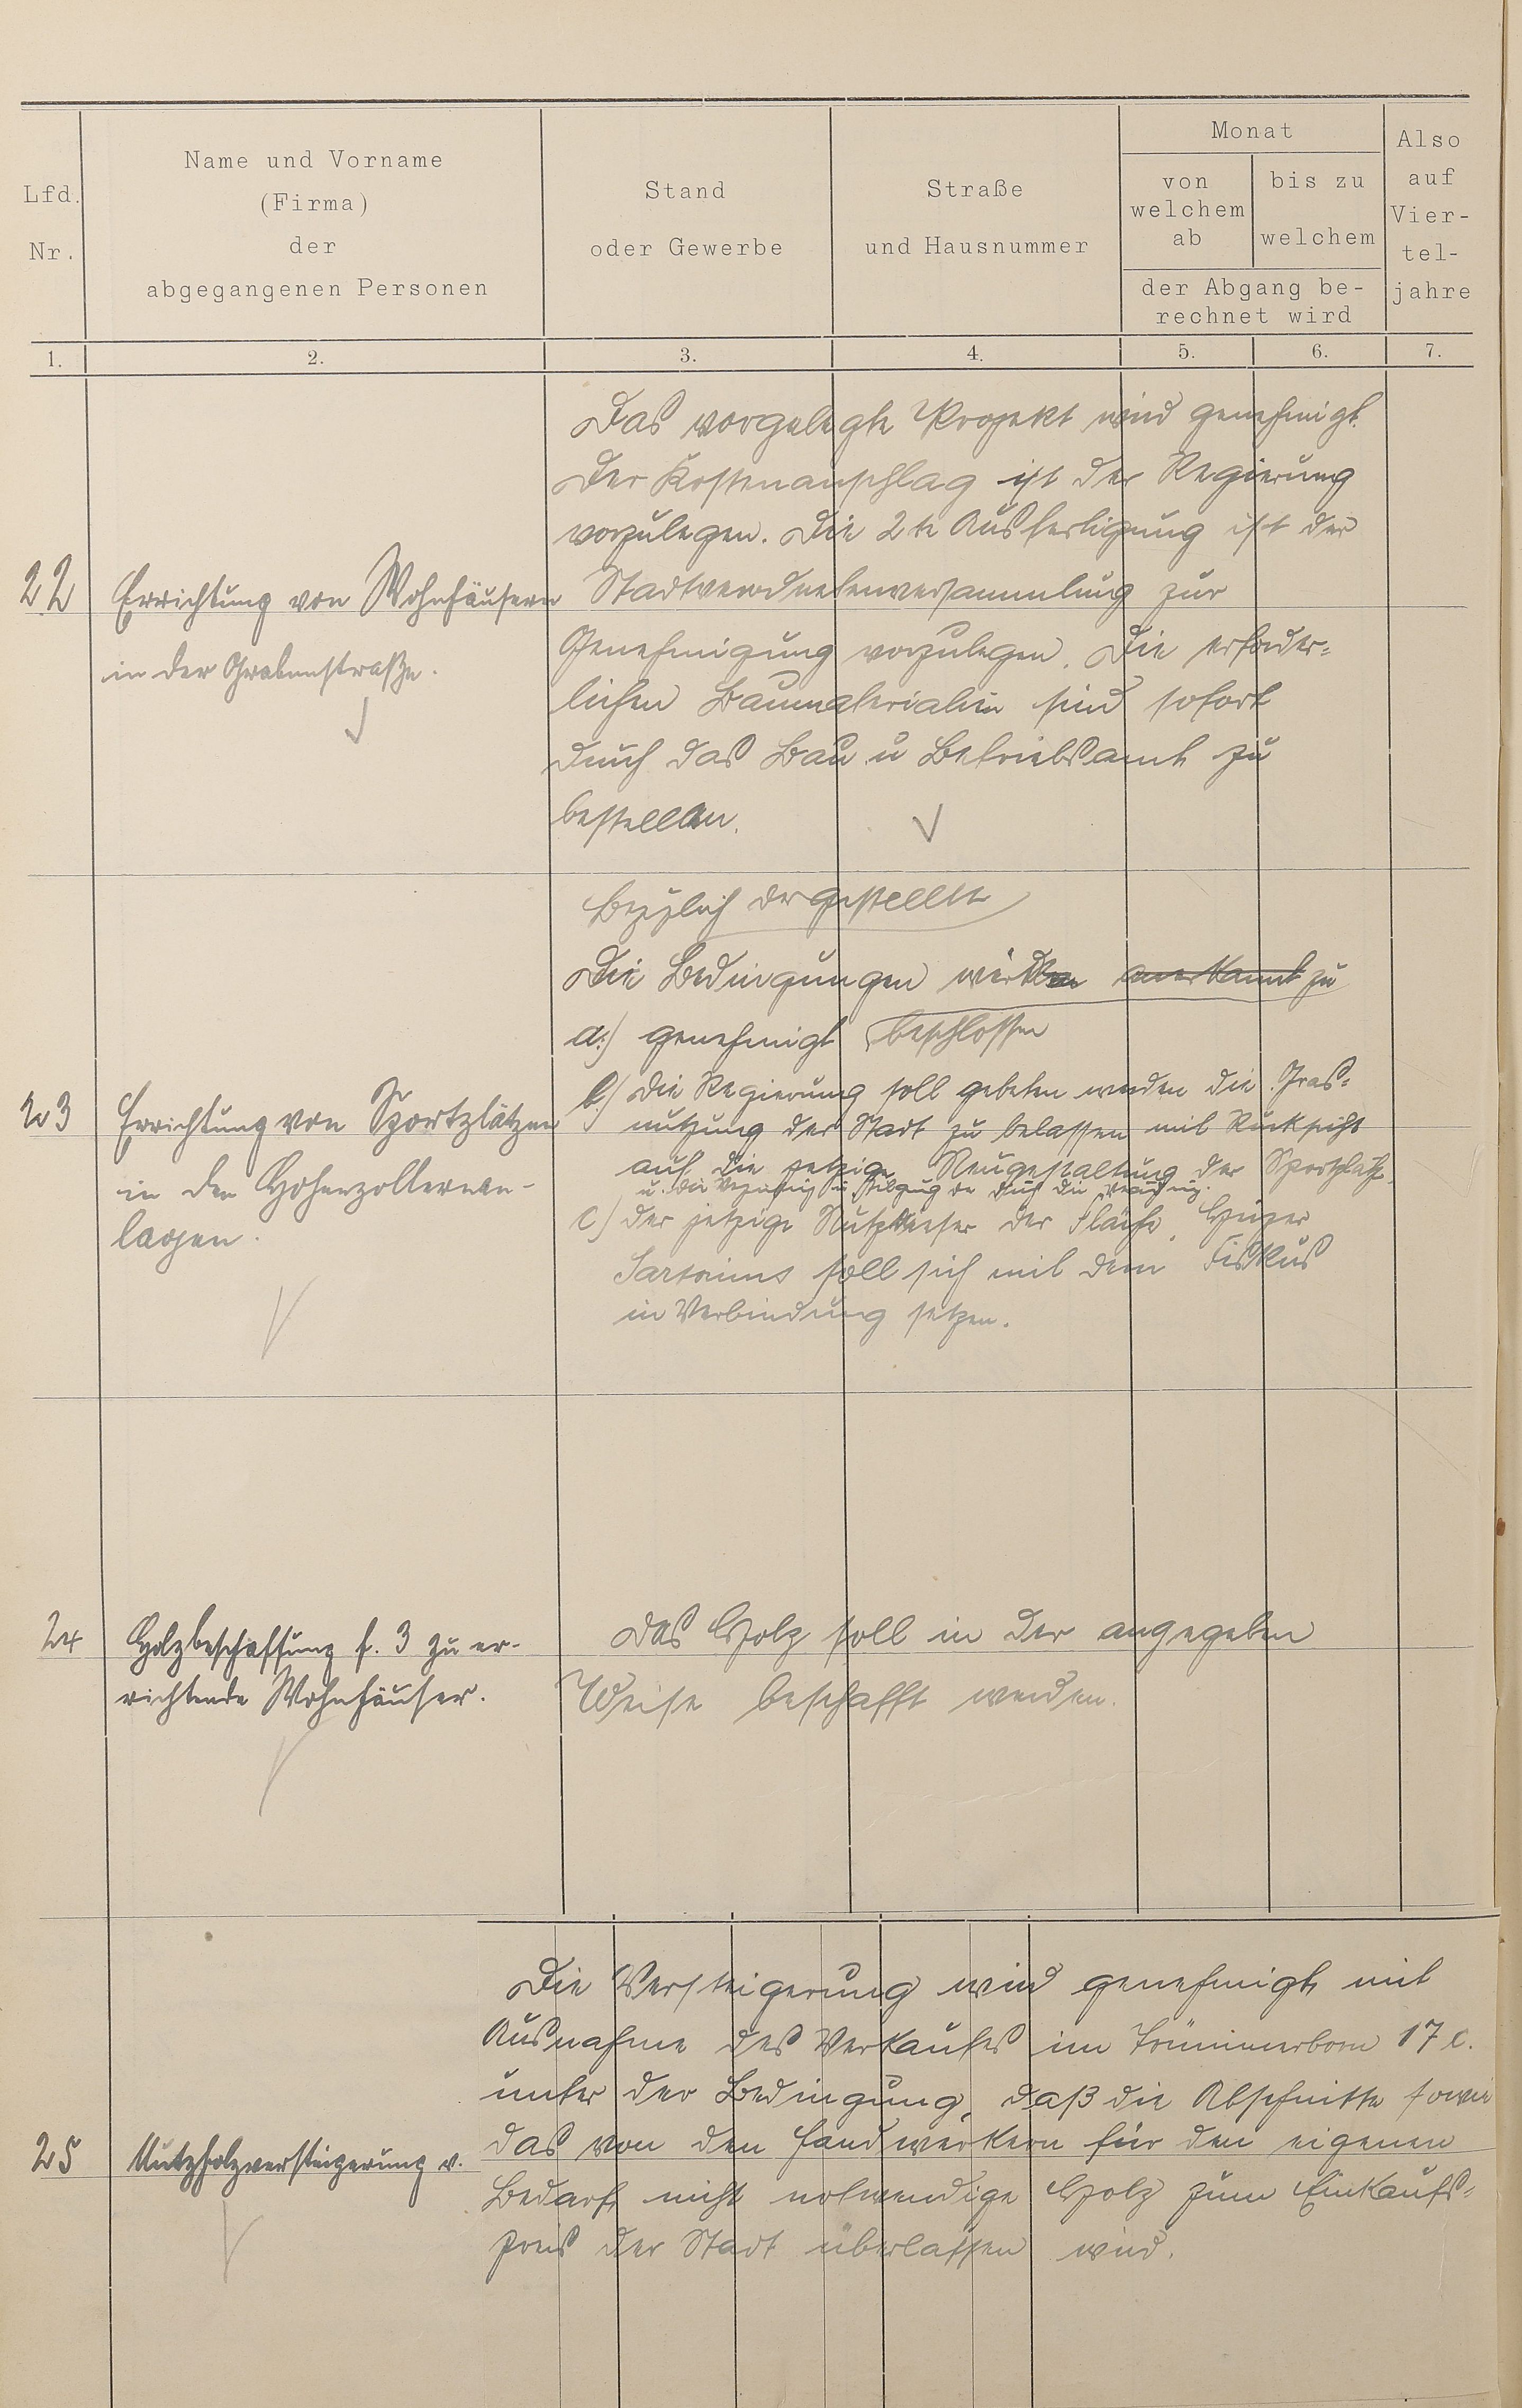 Lfd.
Nr.
Name und Vorname
(Firma)
der
abgegangenen Personen
Stand
oder Gewerbe
Straße
und Hausnummer
Monat
von
welchem
ab
bis zu
welchem
der Abgang be-
rechnet wird
Also
auf
Vier-
tel-
jahre
1. 2. 3. 4. 5. 6. 7.
22
Errichtung von Wohnhäusern
in der Grabenstraße.
Das vorgelegte Projekt wird genehmigt.
Der Kostenanschlag ist der Regierung
vorzulegen. Die 2te Ausfertigung ist der
Stadtverordnetenversammlung zur
Genehmigung vorzulegen. Die erforder=
lichen Baumaterialien sind sofort
durch das Bau u Betriebsamt zu
bestellen.
23
Errichtung von Sportplätzen
in den Hohenzollernan-
lagen.
gestellte
Die Bedingungen werden anerkannt zu
a.) genehmigt beschlossen
b.) Die Regierung soll gebeten werden die Gras=
nutzung der Stadt zu belassen mit Rücksicht
auf die jetzige Neugestaltung der Sportplätze
c.) der jetzige Nutznießer der Fläche,
Sartorius soll sich mit dem Fiskus
in Verbindung setzen.
24
Holzbeschaffung f. 3 zu er-
richtende Wohnhäuser.
Das Holz soll in der angegeben
Weise beschafft werden.
25
Nutzholzversteigerung v.
Die Versteigerung wird genehmigt mit
Ausnahme des Verkaufes im 17 c.
unter der Bedingung, daß die Abschnitte sowie
das von den Handwerkern für den eigenen
Bedarf nicht notwendige Holz zum Einkaufs=
preis der Stadt überlassen wird.